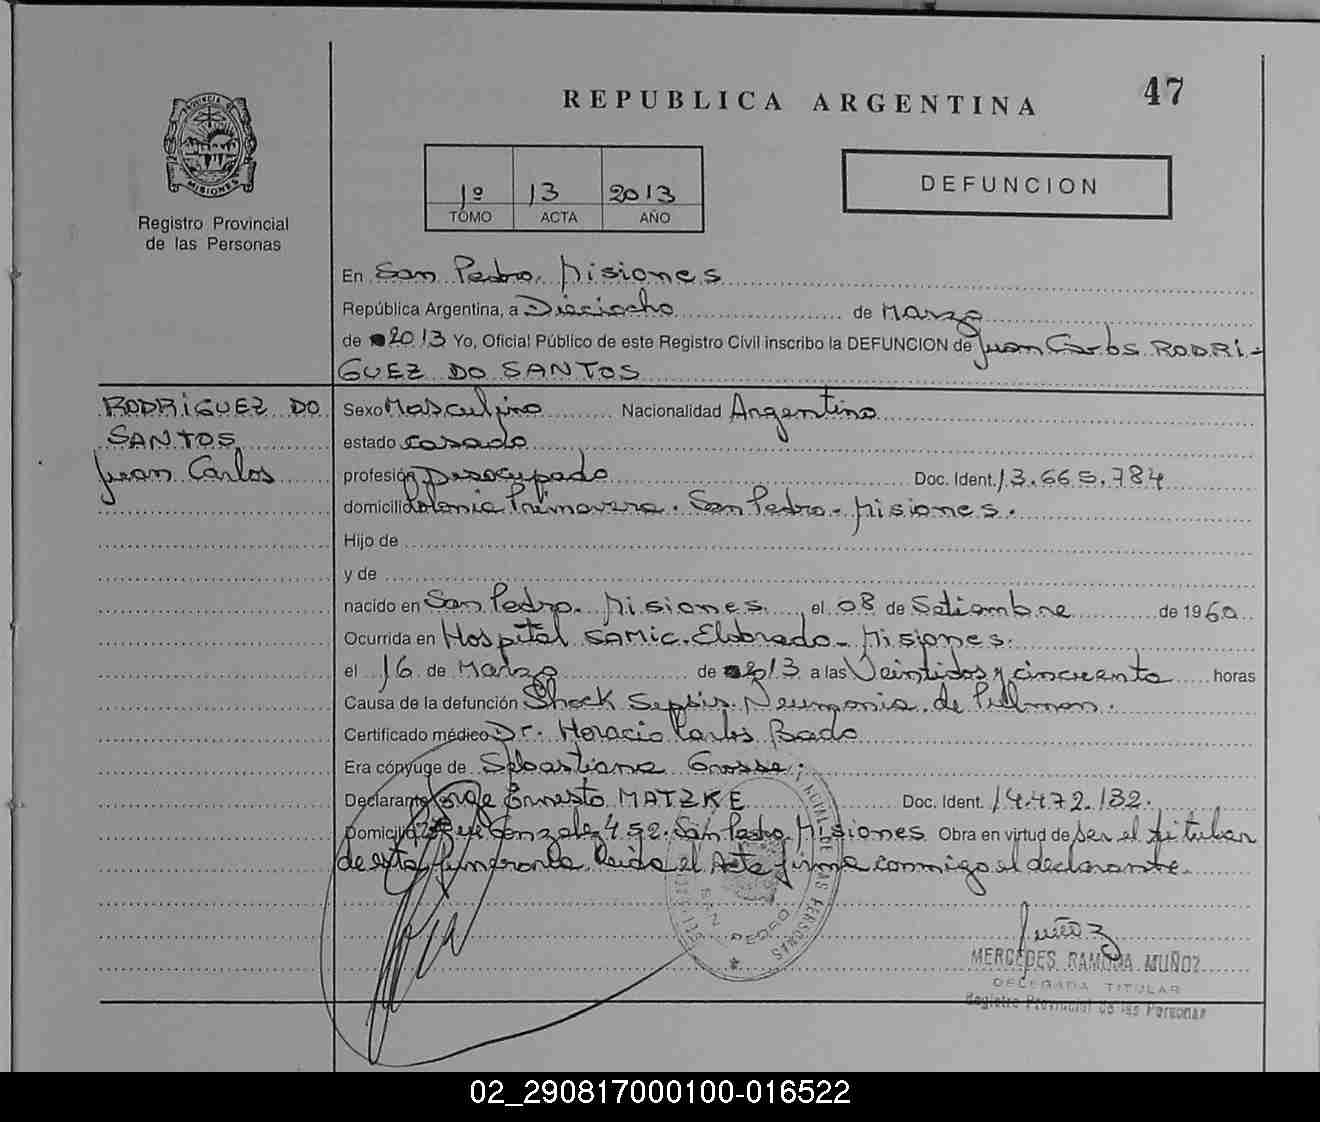 47
REPUBLICA ARGENTINA
PROVINCIA DE
MISIONES
Registro Provincial
de las Personas
1º 13 2013
TOMO ACTA AÑO
DEFUNCION
En San Pedro. Misiones
República Argentina, a Dieciocho de Marzo
de 2013 Yo, Oficial Público de este Registro Civil inscribo la DEFUNCION de Juan Carlos RODRI-
GUEZ DO SANTOS
RODRIGUEZ DO
SANTOS
Juan Carlos
Sexo Masculino Nacionalidad Argentino
estado casado
profesión Desocupado Doc. Ident. 13.665.784
domicilio Colonia Primavera. San Pedro- Misiones.
Hijo de
y de
nacido en San Pedro. Misiones. el 08 de Setiembre de 1960
Ocurrida en Hospital SAMIC. Eldorado- Misiones.
el 16 de Marzo de 2013 a las Veintidos y cincuenta horas
Causa de la defunción Shock Sepsis. Neumonia. de Pulmon.
Certificado médico Dr. Horacio Carlos Bado
Era cónyuge de Sebastiana Grosse.
Declarante Jorge Ernesto MATZKE Doc. Ident. 14.472.132.
Domicilio Gonzalez 452. San Pedro Misiones Obra en virtud de ser el titular
de esta funeraria. Leida el Acta firma conmigo el declarante.
DE LAS PERSONAS
SAN PEDRO
Muñoz
MERCEDES RAMONA MUÑOZ
DELEGADA TITULAR
Registro Provincial de las Personas
02_290817000100-016522